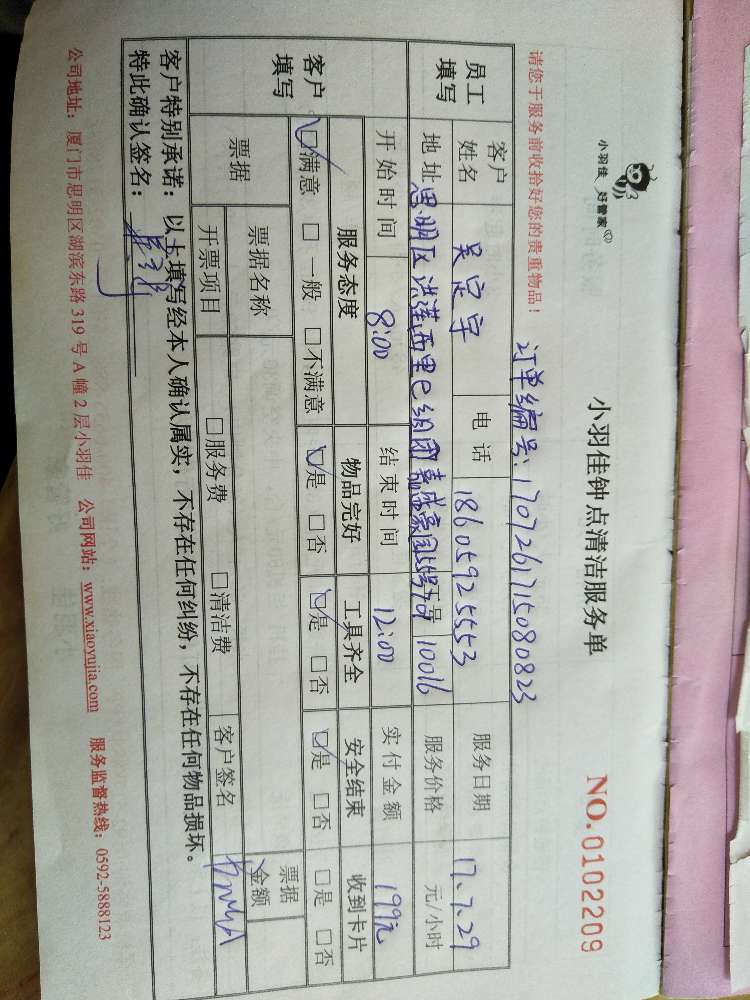 小羽佳 好管家
小羽佳钟点清洁服务单
NO.0102209
请您于服务前收拾好您的贵重物品!
订单编号:1707261715080823
员工填写
客户姓名 吴定宇 电话 18605925553 服务日期 17.7.29
地址 思明区洪莲西里e组团 豪园 工号 10016 服务价格 元/小时
客户填写
开始时间 8:00 结束时间 12:00 实付金额 199元
服务态度 物品完好 工具齐全 安全结束 收到卡片
☑满意 □一般 □不满意 ☑是 □否 ☑是 □否 ☑是 □否 □是 □否
票据 票据名称 票据金额
开票项目 □服务费 □清洁费 客户签名
客户特别承诺:以上填写经本人确认属实,不存在任何纠纷,不存在任何物品损坏。
特此确认签名:
公司地址:厦门市思明区湖滨东路319号A幢2层小羽佳 公司网站:www.xiaoyujia.com 服务监督热线:0592-5888123